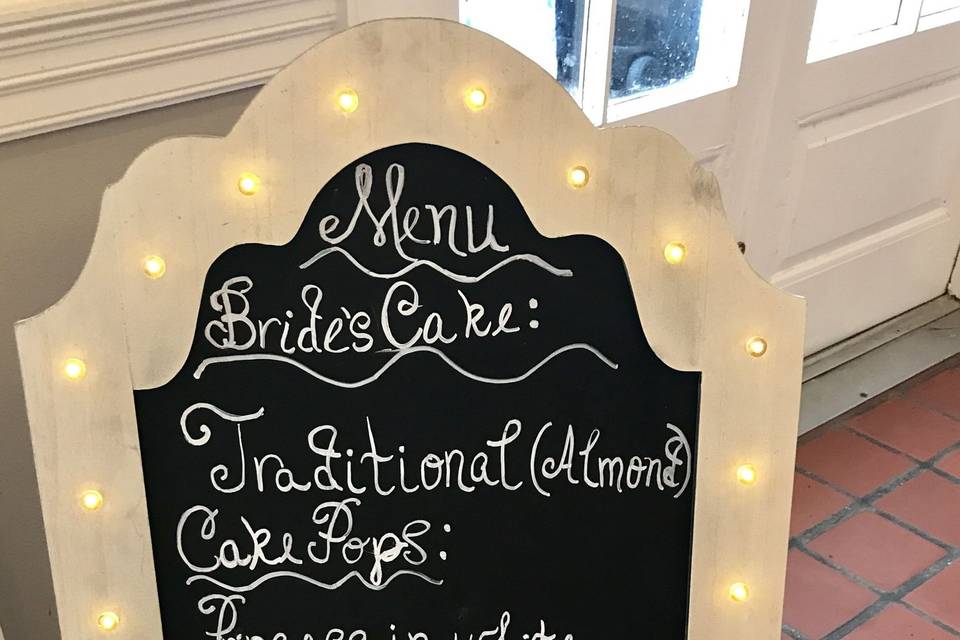 Menu
Bride's Cake:
Traditional (Almond)
Cake Pops:
in white